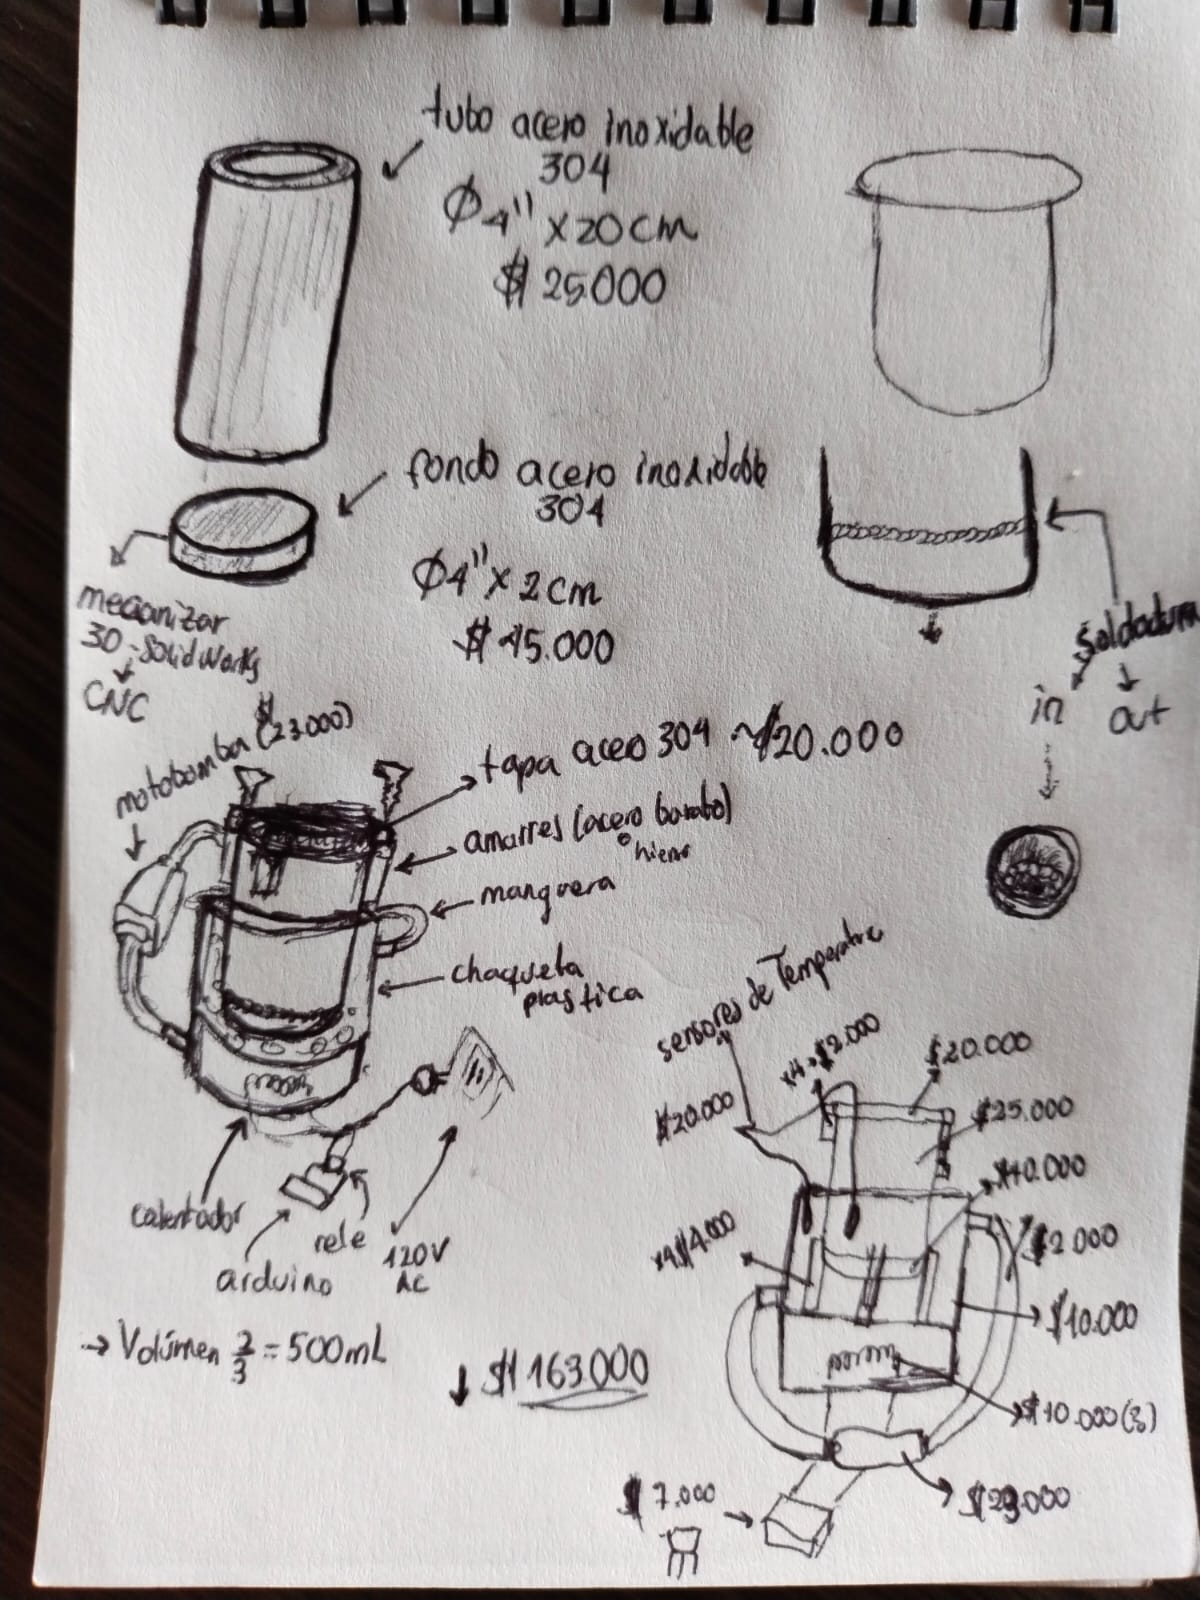 tubo acero inoxidable
304
Ø4" x20cm
$ 25.000
fondo acero inoxidable
304
Ø4" x 2cm
$ 45.000
mecanizar
3D-SolidWorks
CNC
Soldadura
in
out
motobomba ($23.000)
tapa acero 304 ~$20.000
amarres (acero barato)
o hierro
manguera
chaqueta
plastica
calentador
arduino
rele
120V
AC
→ Volúmen 2/3 = 500mL
↓ $163.000
sensores de Temperatura
$20.000
x4→$2.000
$20.000
$25.000
$2.000
x4$4.000
$10.000
$10.000(3)
$7.000